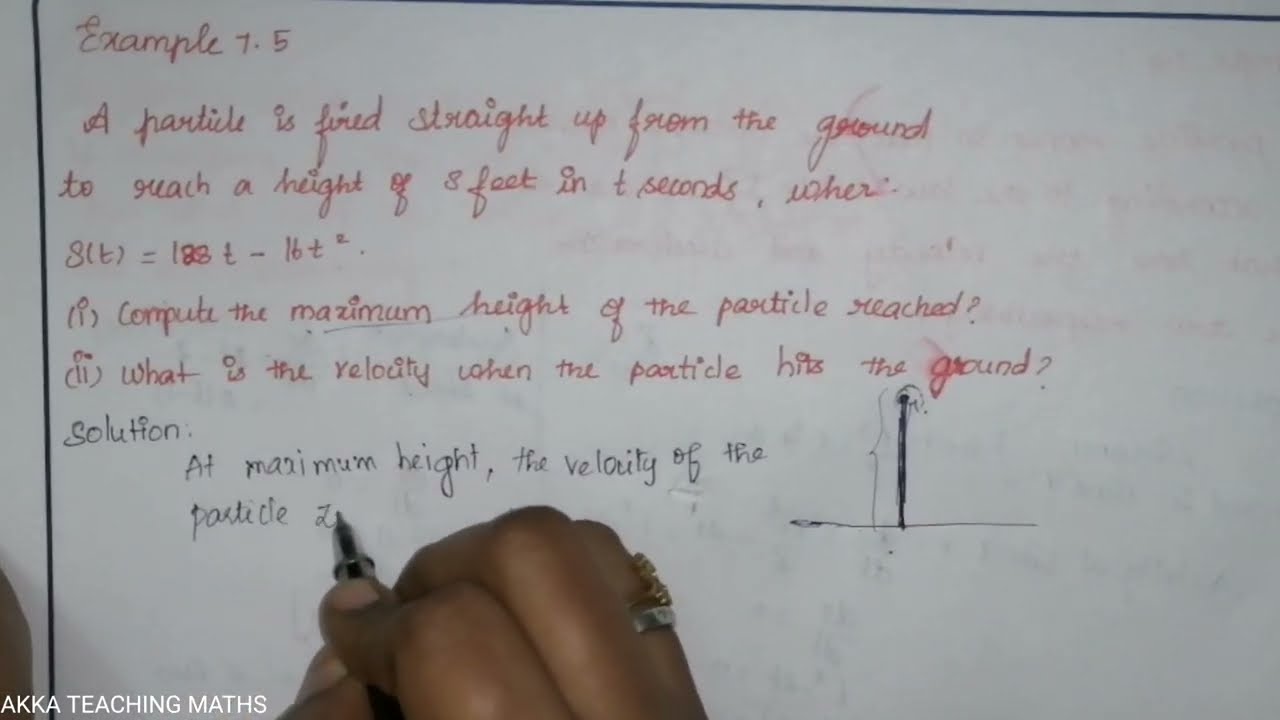 Example 7.5
A particle is fired straight up from the ground
to reach a height of s feet in t seconds, wher
S(t) = 128t - 16t².
(i) Compute the maximum height of the particle reached?
(ii) What is the velocity when the particle hits the ground?
Solution:
At maximum height, the velocity of the
particle
AKKA TEACHING MATHS